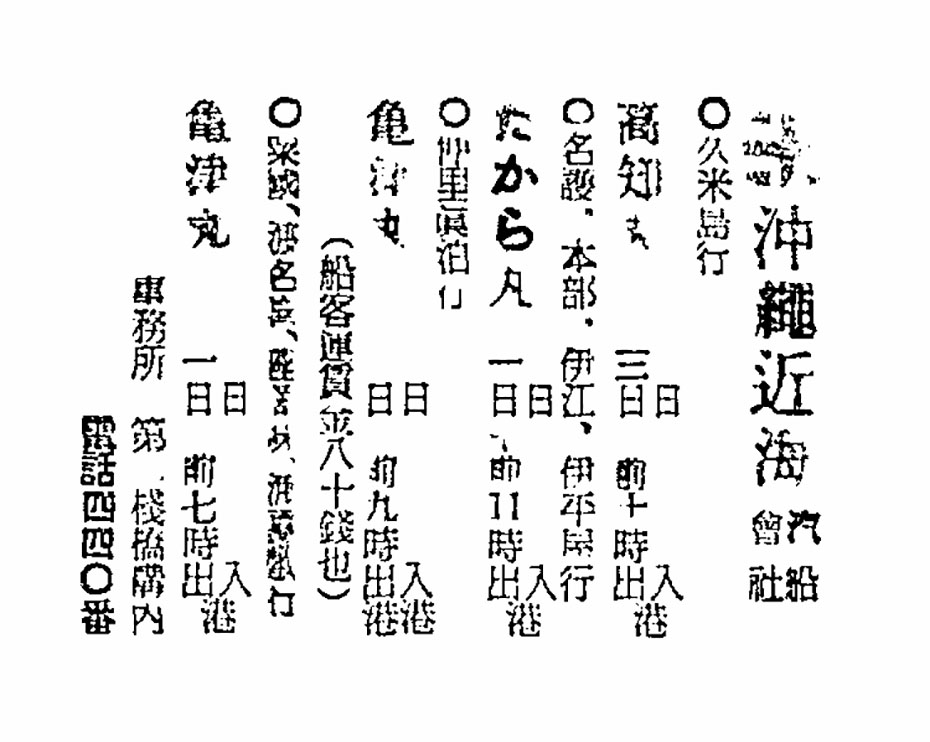 沖繩近海汽船會社
〇久米島行
高知丸 三日日 前十時入出港
〇名護、本部、伊江、伊平屋行
たから丸 一日日 前11時入出港
〇仲里眞泊行
亀津丸 日日 前九時入港出港
(船客運賃金八十錢也)
亀津丸 一日日 前七時入出港
事務所 第 桟橋構内
電話四四〇番